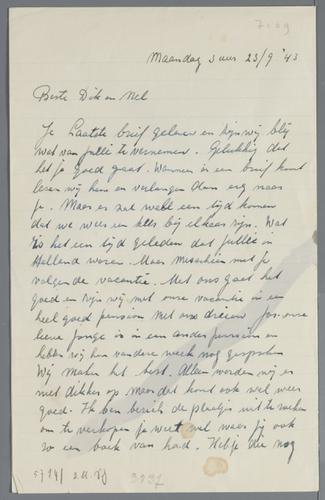 7109
Maandag 3 uur 23/9 '43
Beste Dik en Nel
Je Laatste brief gelezen en zijn wij blij
wat van jullie te vernemen. Gelukkig dat
het je goed gaat. Wanneer is een brief komt
lezen wij hem en verlangen dan erg naar
je. Maar er zal well een tijd komen
dat we weer en alles bij elkaar zijn. Wat
is het een tijd geleden dat jullie in
Holland waren. Maar misschien met je
volgende vacantie. Met ons gaat het
goed en zijn wij met onze vacantie in een
heel goed pension met ons drieen Jos. onze
lieve jonge is in een ander pension en
hebben wij hem vandere week nog gesproken
Wij maken het best. Alleen worden wij er
niet dikker op maar dat komt ook wel weer
goed. Ik ben bereids de plaatjes uit te zoeken
om te verkopen je weet wel waar jij ook
zo een boek van had. Heb je die nog